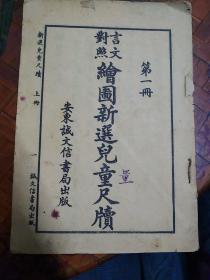 第一冊
言文對照
繪圖新選兒童尺牘
安東誠文信書局出版
新選兒童尺牘 上冊 一 誠文信書局出版